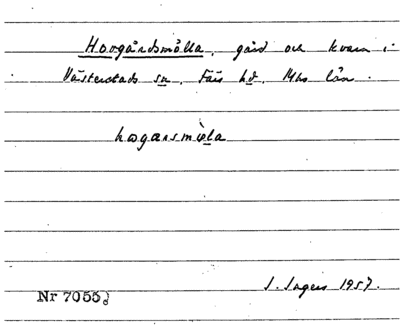 Hovgårdsmölla, gård och kvarn i
Västerstads sn, Färs hd, Mhs län.
hogarsmöla
S. Ingers 1957.
Nr 7055